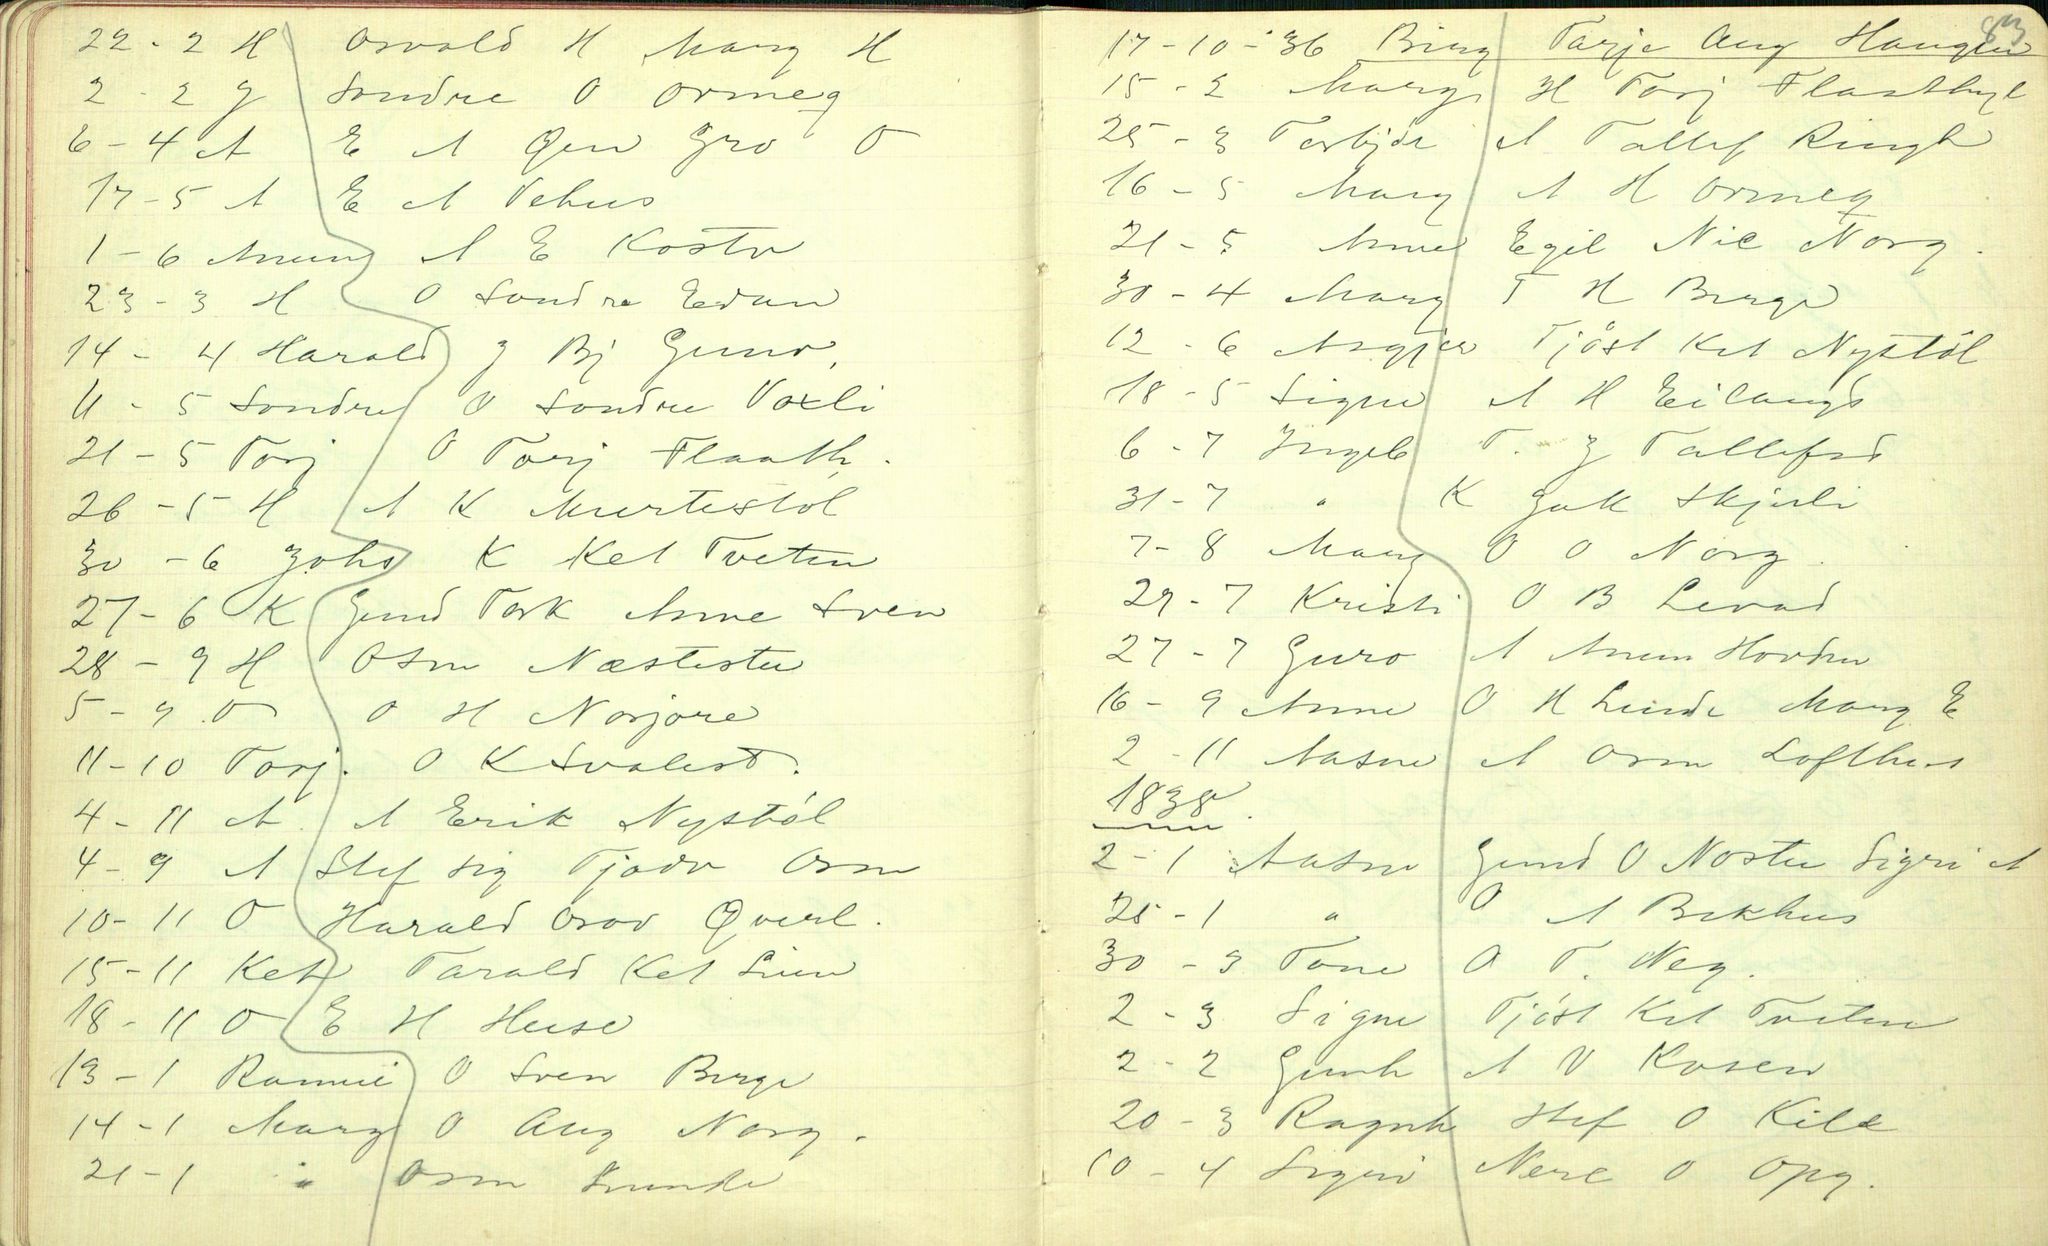 22 - 2 H Osvald H Marg H
2 - 2 G Sondre O Ormeg
6 - 4 A E A Gro O
17 - 5 A E A Vehus
1 - 6 Anun A E Kostv
23 - 3 H O Sondre
14 - 4 Harald G Bj Gunv.
11 - 5 Sondre O Sondre Vaxli
21 - 5 Torj O Torj Flaath.
26 - 5 H A K Murtestøl
30 - 6 Johs K Ket Tveten
27 - 6 K Gund Tork Anne Sven
28 - 9 H Osm Næstestu
5 - 9 O O H Norjore
11 - 10 Torj. O K Svalest.
4 - 11 A A Erik Nystøl
4 - 9 A Stef Sig Tjodv Osm
10 - 11 O Harald Qverl.
15 - 11 Ket Tarald Ket Lien
18 - 11 O E H Huse
13 - 1 O Sven Berge
14 - 1 Marg O Aug Norg.
21 - 1 " Osm
83
17 - 10 - 36 Birg Tarje Aug Haugen
15 - 2 Marg H Torj Flaathyl
25 - 3 Torbjør A Tallef Ringh
16 - 5 Marg A H Ormeg
21 - 5 Anne Egil Nil Norg.
30 - 4 Marg T H Berge
12 - 6 Asgjer Tjøst Ket Nystøl
18 - 5 Signe A H Eilangs
6 - 7 Ingeb T. G Tallefsd
31 - 7 " K Gok Skjerli
7 - 8 Marg O O Norg.
29 - 7 Kristi O B Levad
27 - 7 Guro A Anun Hovden
16 - 9 Anne O H Lunde Marg E
2 - 11 Aasne A Osm Lofthus
1838.
2 - 1 Aasne Gund O Nostu Sigri A
25 - 1 " O A Bekhus
30 - 3 Tone O T. Neg.
2 - 3 Signe Tjøst Ket Tveten
2 - 2 Gunh A V Kosen
20 - 3 Ragnh Stef O Kile
10 - 4 Sigrid O Opg.